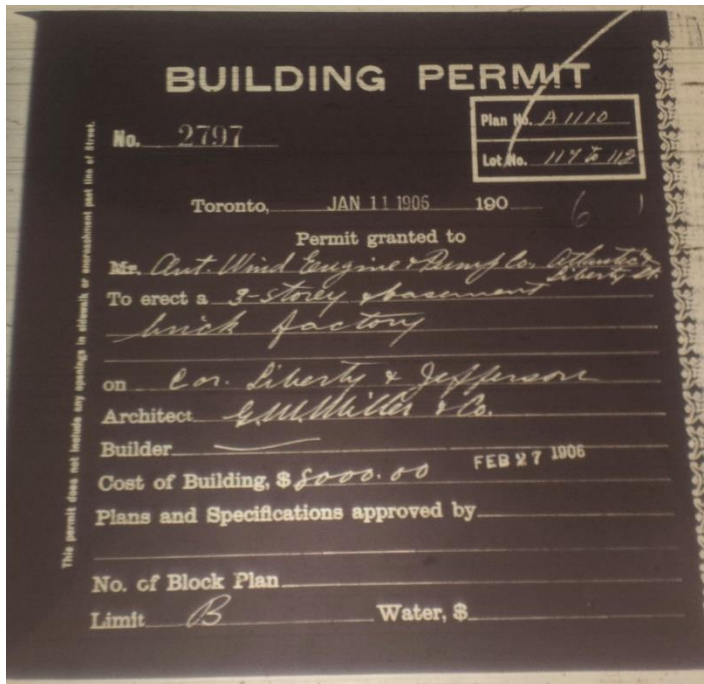 BUILDING PERMIT
No. 2797
Plan No. A 1110
Lot No. 117 to 119
Toronto, JAN 11 1906 190 6
Permit granted to
Mr. Ont. Wind Engine & Pump Co. Atlantic &
Liberty St.
To erect a 3-storey & basement
brick factory
on Cor. Liberty & Jefferson
Architect G.M. Miller & Co.
Builder
Cost of Building, $ 8000.00 FEB 27 1906
Plans and Specifications approved by
No. of Block Plan
Limit B Water, $
This permit does not include any openings in sidewalk or encroachment past line of Street.